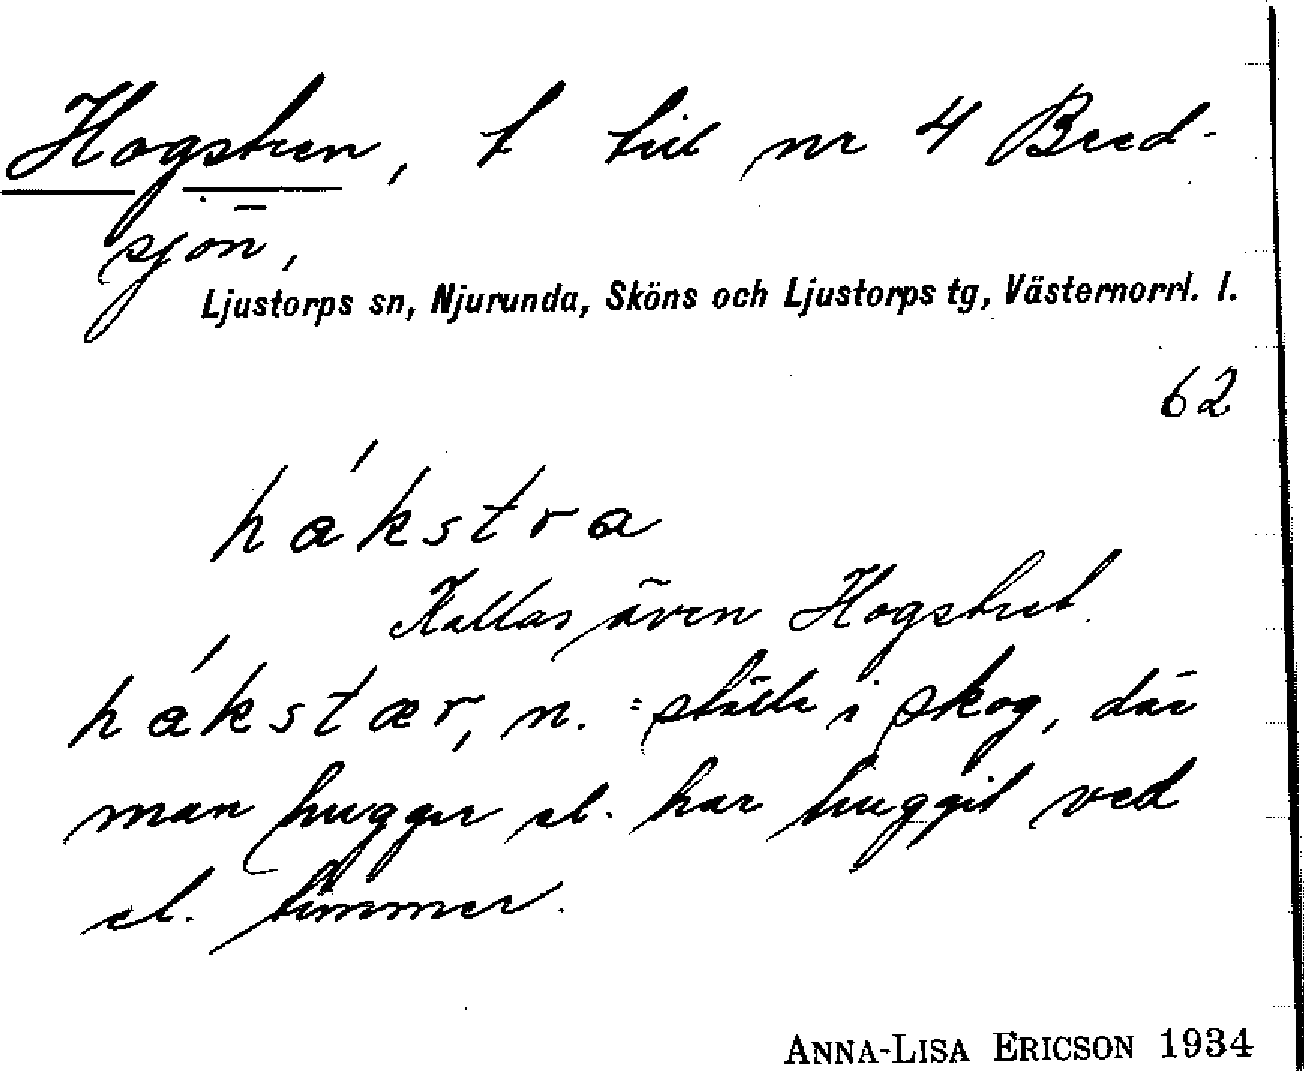 Hogstren, t till nr 4 Bred-
sjön,
Ljustorps sn, Njurunda, Sköns och Ljustorps tg, Västernorrl. l.
62
hákstra
Kallas även Hogstret.
hákstær, n. = ställe i skog, där
man hugger el. har huggit ved
el. timmer.
ANNA-LISA ERICSON 1934